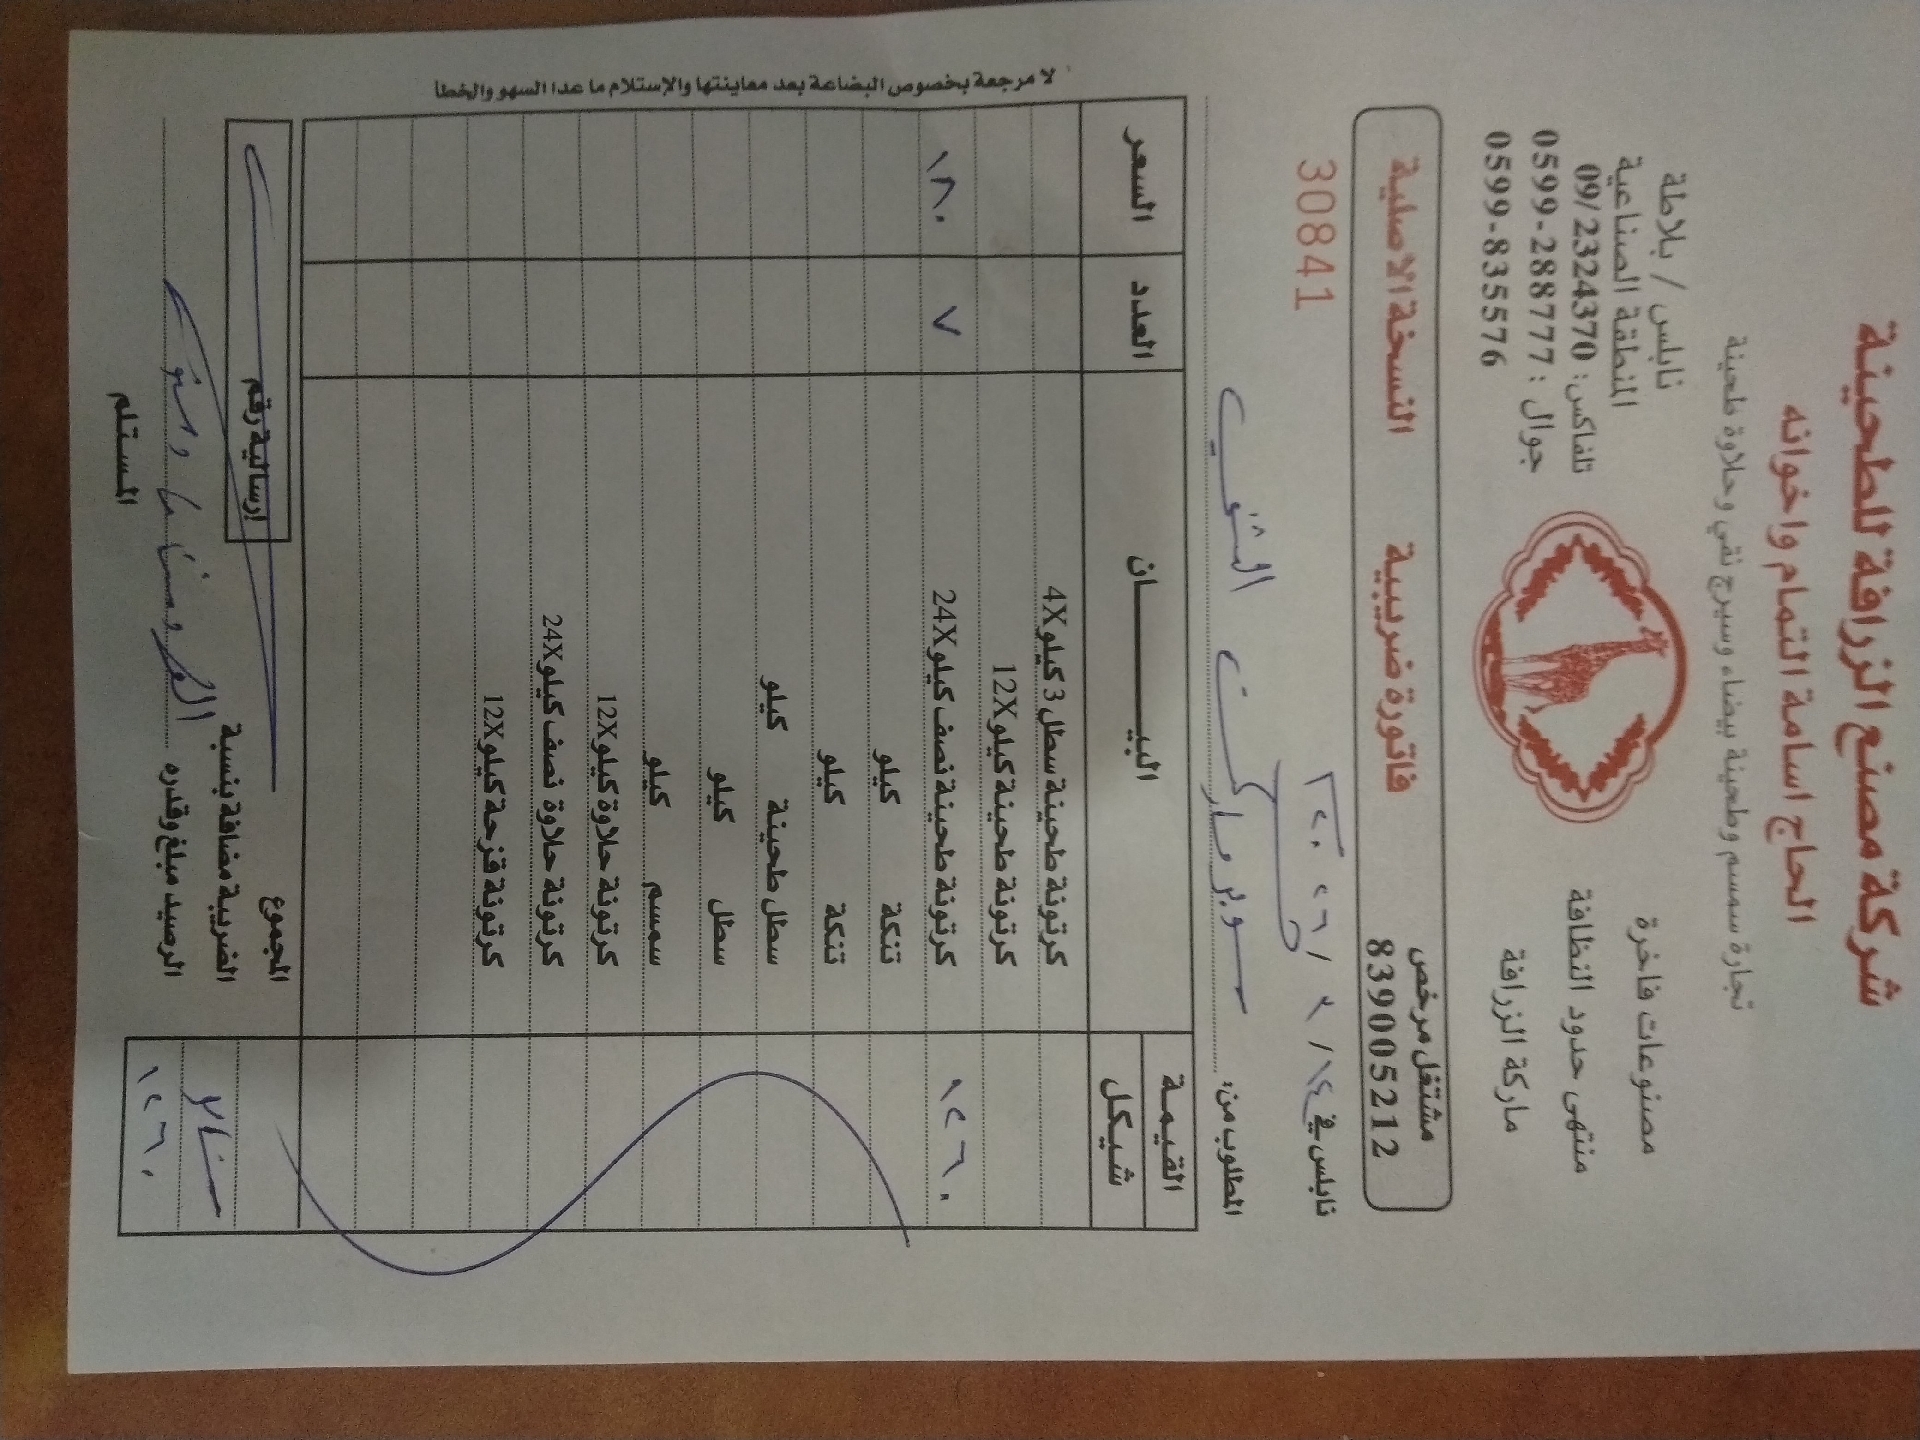 شركة مصنع الزرافة للطحينة
الحاج اسامة التمام واخوانه
تجارة سمسم وطحينة بيضاء وسيرج نقي وحلاوة طحينة
مصنوعات فاخرة
منتهى حدود النظافة
ماركة الزرافة
نابلس / بلاطة
المنطقة الصناعية
تلفاكس: 09/2324370
جوال : 0599-288777
0599-835576
مشتغل مرخص
839005212
فاتورة ضريبية
النسخة الاصلية
نابلس في ١٤ / ٢ / ٢٠٢٦
30841
المطلوب من: سوبر ماركت
القيمة
شيكل
البيـــــــان
العدد
السعر
كرتونة طحينة سطل 3 كيلو 4X
كرتونة طحينة كيلو 12X
١٢٦٠ كرتونة طحينة نصف كيلو 24X ٧ ١٨٠
تنكة كيلو
تنكة كيلو
سطل طحينة كيلو
سطل كيلو
سمسم كيلو
كرتونة حلاوة كيلو 12X
كرتونة حلاوة نصف كيلو 24X
كرتونة قزحة كيلو 12X
المجموع
إرسالية رقم
الضريبة مضافة بنسبة
الرصيد مبلغ وقدره
١٢٦٠
المستلم
لا مرجعة بخصوص البضاعة بعد معاينتها والإستلام ما عدا السهو والخطأ